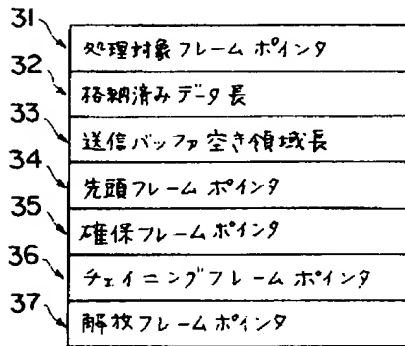 31 処理対象フレームポインタ
32 格納済みデータ長
33 送信バッファ空き領域長
34 先頭フレームポインタ
35 確保フレームポインタ
36 チェイニングフレームポインタ
37 解放フレームポインタ